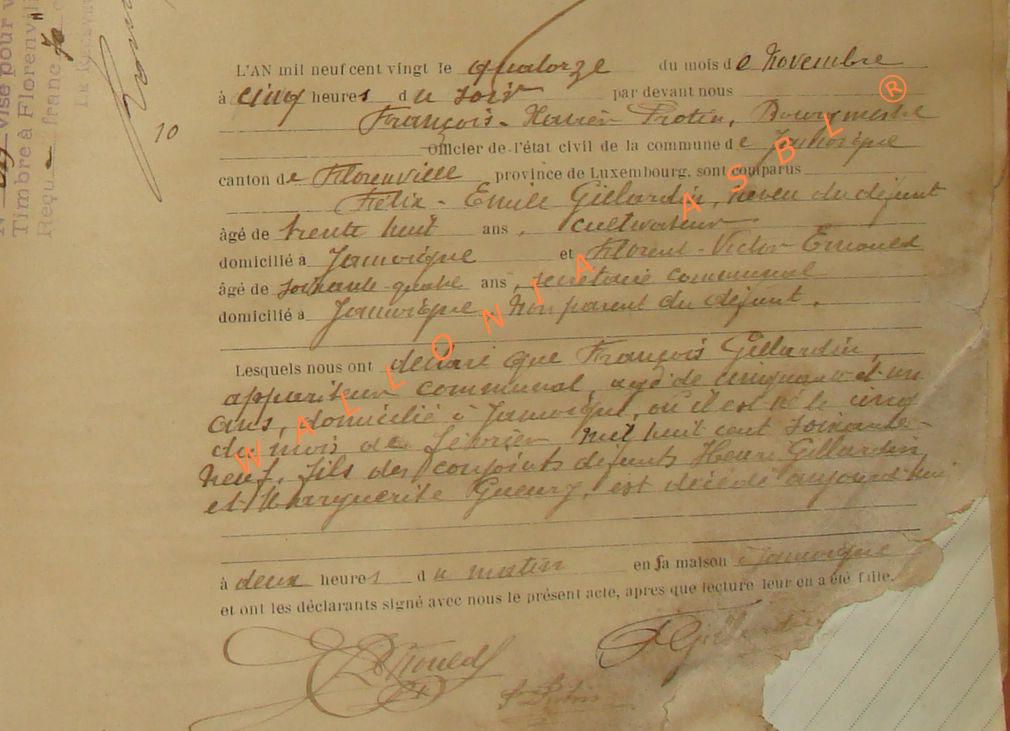 visé pour
Timbre à Florenvil
Reçu franc
10
L'AN mil neuf cent vingt le quatorze du mois de Novembre
à cinq heures du soir par devant nous
François-Xavier Protin, Bourgmestre
Officier de l'état civil de la commune de Jamoigne
canton de Florenville province de Luxembourg, sont comparus
Félix-Emile Gillardin, neveu du défunt
âgé de trente huit ans, cultivateur
domicilié à Jamoigne et Florent-Victor Ernould
âgé de soixante-quatre ans, secrétaire communal
domicilié à Jamoigne, Non parent du défunt.
Lesquels nous ont déclaré que François Gillardin,
appariteur communal, agé de cinquante et un
ans, domicilié à Jamoigne, où il est né le cinq
du mois de Février mil huit cent soixante-
neuf, fils des conjoints défunts Henri Gillardin
et Marguerite Gueury, est décédé aujourd'hui
à deux heures du matin en sa maison à Jamoigne
et ont les déclarants signé avec nous le présent acte, après que lecture leur en a été faite.
WALLONIA ASBL ®